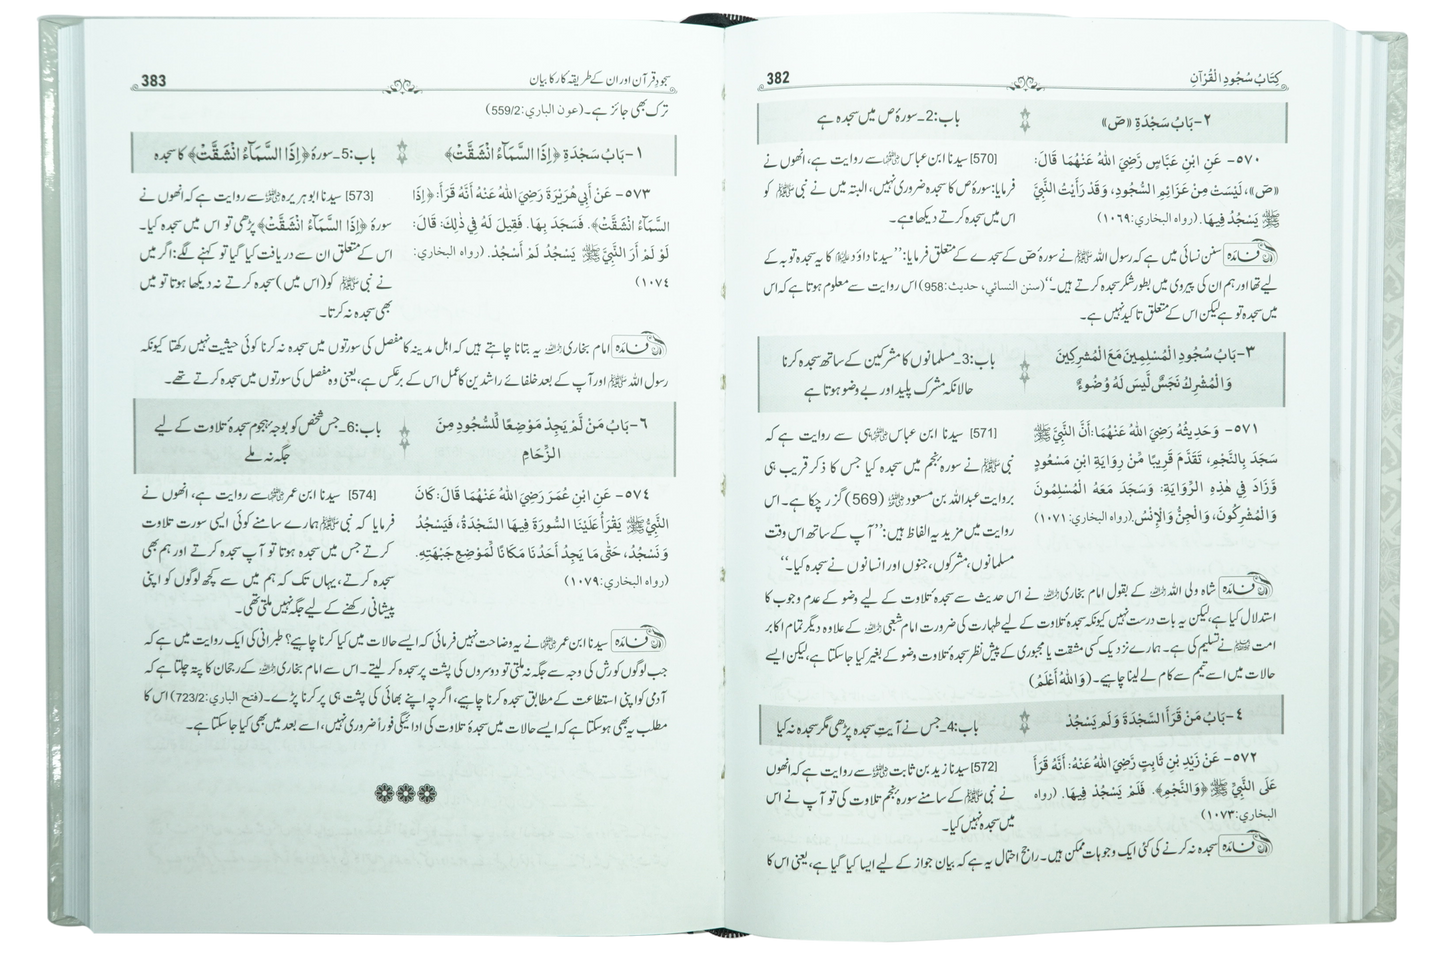 382
كِتَابُ سُجُودِ الْقُرْآنِ
٢- بَابُ سَجْدَةِ «صٓ»
باب:2- سورۂ ص میں سجدہ ہے
٥٧٠- عَنِ ابْنِ عَبَّاسٍ رَضِيَ اللهُ عَنْهُمَا قَالَ:
«صٓ»، لَيْسَتْ مِنْ عَزَائِمِ السُّجُودِ، وَقَدْ رَأَيْتُ النَّبِيَّ
ﷺ يَسْجُدُ فِيهَا. (رواه البخاري: ١٠٦٩)
[570] سیدنا ابن عباس رضی اللہ عنہما سے روایت ہے، انھوں نے
فرمایا: سورۂ ص کا سجدہ ضروری نہیں، البتہ میں نے نبی ﷺ کو
اس میں سجدہ کرتے دیکھا ہے۔
فائدہ سنن نسائی میں ہے کہ رسول اللہ ﷺ نے سورۂ صٓ کے سجدے کے متعلق فرمایا: ’’سیدنا داؤد علیہ السلام کا یہ سجدہ توبہ کے
لیے تھا اور ہم ان کی پیروی میں بطور شکر سجدہ کرتے ہیں۔‘‘ (سنن النسائي، حدیث:958) اس روایت سے معلوم ہوتا ہے کہ اس
میں سجدہ تو ہے لیکن اس کے متعلق تاکید نہیں ہے۔
٣- بَابُ سُجُودِ الْمُسْلِمِينَ مَعَ الْمُشْرِكِينَ
وَالْمُشْرِكُ نَجَسٌ لَّيْسَ لَهُ وُضُوءٌ
باب:3- مسلمانوں کا مشرکین کے ساتھ سجدہ کرنا
حالانکہ مشرک پلید اور بے وضو ہوتا ہے
٥٧١- وَحَدِيثُهُ رَضِيَ اللهُ عَنْهُمَا: أَنَّ النَّبِيَّ ﷺ
سَجَدَ بِالنَّجْمِ، تَقَدَّمَ قَرِيبًا مِّنْ رِوَايَةِ ابْنِ مَسْعُودٍ
وَزَادَ فِي هٰذِهِ الرِّوَايَةِ: وَسَجَدَ مَعَهُ الْمُسْلِمُونَ
وَالْمُشْرِكُونَ، وَالْجِنُّ وَالْإِنْسُ. (رواه البخاري: ١٠٧١)
[571] سیدنا ابن عباس رضی اللہ عنہما ہی سے روایت ہے کہ
نبی ﷺ نے سورۂ نجم میں سجدہ کیا جس کا ذکر قریب ہی
بروایت عبداللہ بن مسعود رضی اللہ عنہ (569) گزر چکا ہے۔ اس
روایت میں مزید یہ الفاظ ہیں: ’’آپ کے ساتھ اس وقت
مسلمانوں، مشرکوں، جنوں اور انسانوں نے سجدہ کیا۔‘‘
فائدہ شاہ ولی اللہ رحمہ اللہ کے بقول امام بخاری رحمہ اللہ نے اس حدیث سے سجدۂ تلاوت کے لیے وضو کے عدم وجوب کا
استدلال کیا ہے، لیکن یہ بات درست نہیں کیونکہ سجدۂ تلاوت کے لیے طہارت کی ضرورت امام شعبی رحمہ اللہ کے علاوہ دیگر تمام اکابر
امت نے تسلیم کی ہے۔ ہمارے نزدیک کسی مشقت یا مجبوری کے پیش نظر سجدۂ تلاوت وضو کے بغیر کیا جا سکتا ہے، لیکن ایسے
حالات میں اسے تیمم سے کام لے لینا چاہیے۔ (وَاللهُ أَعْلَمُ)
٤- بَابُ مَنْ قَرَأَ السَّجْدَةَ وَلَمْ يَسْجُدْ
باب:4- جس نے آیت سجدہ پڑھی مگر سجدہ نہ کیا
٥٧٢- عَنْ زَيْدِ بْنِ ثَابِتٍ رَضِيَ اللهُ عَنْهُ: أَنَّهُ قَرَأَ
عَلَى النَّبِيِّ ﷺ ﴿وَالنَّجْمِ﴾. فَلَمْ يَسْجُدْ فِيهَا. (رواه
البخاري: ١٠٧٣)
[572] سیدنا زید بن ثابت رضی اللہ عنہ سے روایت ہے کہ انھوں
نے نبی ﷺ کے سامنے سورۂ نجم تلاوت کی تو آپ نے اس
میں سجدہ نہیں کیا۔
فائدہ سجدہ نہ کرنے کی کئی ایک وجوہات ممکن ہیں۔ راجح احتمال یہ ہے کہ بیان جواز کے لیے ایسا کیا گیا ہے، یعنی اس کا
383
سجود قرآن اور ان کے طریقہ کار کا بیان
ترک بھی جائز ہے۔ (عون الباري:559/2)
١- بَابُ سَجْدَةِ ﴿إِذَا السَّمَآءُ انْشَقَّتْ﴾
باب:5- سورۂ ﴿إِذَا السَّمَآءُ انْشَقَّتْ﴾ کا سجدہ
٥٧٣- عَنْ أَبِي هُرَيْرَةَ رَضِيَ اللهُ عَنْهُ أَنَّهُ قَرَأَ: ﴿إِذَا
السَّمَآءُ انْشَقَّتْ﴾. فَسَجَدَ بِهَا. فَقِيلَ لَهُ فِي ذٰلِكَ: قَالَ:
لَوْ لَمْ أَرَ النَّبِيَّ ﷺ يَسْجُدُ لَمْ أَسْجُدْ. (رواه البخاري:
١٠٧٤)
[573] سیدنا ابو ہریرہ رضی اللہ عنہ سے روایت ہے کہ انھوں نے
سورۂ ﴿إِذَا السَّمَآءُ انْشَقَّتْ﴾ پڑھی تو اس میں سجدہ کیا۔
اس کے متعلق ان سے دریافت کیا گیا تو کہنے لگے: اگر میں
نے نبی ﷺ کو (اس میں) سجدہ کرتے نہ دیکھا ہوتا تو میں
بھی سجدہ نہ کرتا۔
فائدہ امام بخاری رحمہ اللہ یہ بتانا چاہتے ہیں کہ اہل مدینہ کا مفصل کی سورتوں میں سجدہ نہ کرنا کوئی حیثیت نہیں رکھتا کیونکہ
رسول اللہ ﷺ اور آپ کے بعد خلفائے راشدین کا عمل اس کے برعکس ہے، یعنی وہ مفصل کی سورتوں میں سجدہ کرتے تھے۔
٦- بَابُ مَنْ لَّمْ يَجِدْ مَوْضِعًا لِّلسُّجُودِ مِنَ
الزِّحَامِ
باب:6- جس شخص کو بوجہ ہجوم سجدۂ تلاوت کے لیے
جگہ نہ ملے
٥٧٤- عَنِ ابْنِ عُمَرَ رَضِيَ اللهُ عَنْهُمَا قَالَ: كَانَ
النَّبِيُّ ﷺ يَقْرَأُ عَلَيْنَا السُّورَةَ فِيهَا السَّجْدَةُ، فَيَسْجُدُ
وَنَسْجُدُ، حَتَّى مَا يَجِدُ أَحَدُنَا مَكَانًا لِّمَوْضِعِ جَبْهَتِهِ.
(رواه البخاري: ١٠٧٩)
[574] سیدنا ابن عمر رضی اللہ عنہما سے روایت ہے، انھوں نے
فرمایا کہ نبی ﷺ ہمارے سامنے کوئی ایسی سورت تلاوت
کرتے جس میں سجدہ ہوتا تو آپ سجدہ کرتے اور ہم بھی
سجدہ کرتے، یہاں تک کہ ہم میں سے کچھ لوگوں کو اپنی
پیشانی رکھنے کے لیے جگہ نہیں ملتی تھی۔
فائدہ سیدنا ابن عمر رضی اللہ عنہما نے یہ وضاحت نہیں فرمائی کہ ایسے حالات میں کیا کرنا چاہیے؟ طبرانی کی ایک روایت میں ہے کہ
جب لوگوں کو رش کی وجہ سے جگہ نہ ملتی تو دوسروں کی پشت پر سجدہ کر لیتے۔ اس سے امام بخاری رحمہ اللہ کے رجحان کا پتہ چلتا ہے کہ
آدمی کو اپنی استطاعت کے مطابق سجدہ کرنا چاہیے، اگرچہ اپنے بھائی کی پشت ہی پر کرنا پڑے۔ (فتح الباري:723/2) اس کا
مطلب یہ بھی ہو سکتا ہے کہ ایسے حالات میں سجدۂ تلاوت کی ادائیگی فوراً ضروری نہیں، اسے بعد میں بھی کیا جا سکتا ہے۔